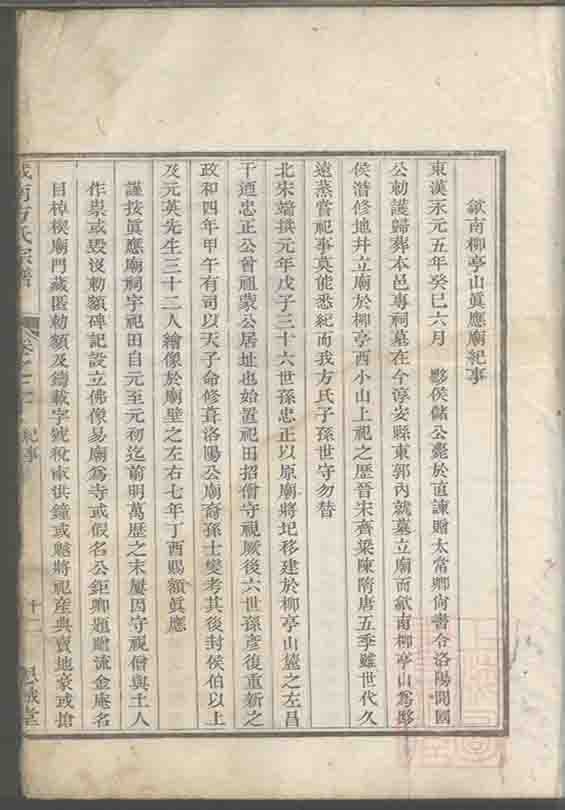 歙南柳亭山眞應廟紀事
東漢永元五年癸巳六月　黟侯儲公薨於直諫贈太常卿尙書令洛陽開國
公勅護歸葬本邑專祠墓在今淳安縣東郭內就墓立廟而歙南柳亭山爲黟
侯潛修地幷立廟於柳亭西小山上祀之歷晉宋齊梁陳隋唐五季雖世代久
遠蒸嘗祀事莫能悉紀而我方氏子孫世守勿替
北宋端拱元年戊子三十六世孫忠正以原廟將圮移建於柳亭山麓之左昌
干迺忠正公曾祖蒙公居址也始置祀田招僧守視厥後六世孫彥復重新之
政和四年甲午有司以天子命修葺洛陽公廟裔孫士燮考其後封侯伯以上
及元英先生三十二人繪像於廟壁之左右七年丁酉賜額眞應
謹按眞應廟祠宇祀田自元至元初迄前明萬歷之末屢因守視僧與土人
作祟或毀沒勅額碑記設立佛像易廟爲寺或假名公鉅卿題贈流金庵名
目棹楔廟門藏匿勅額及鑄載字號稅畝供鐘或魆將祀產典賣地豪或搶
南方氏宗譜
紀事
十二